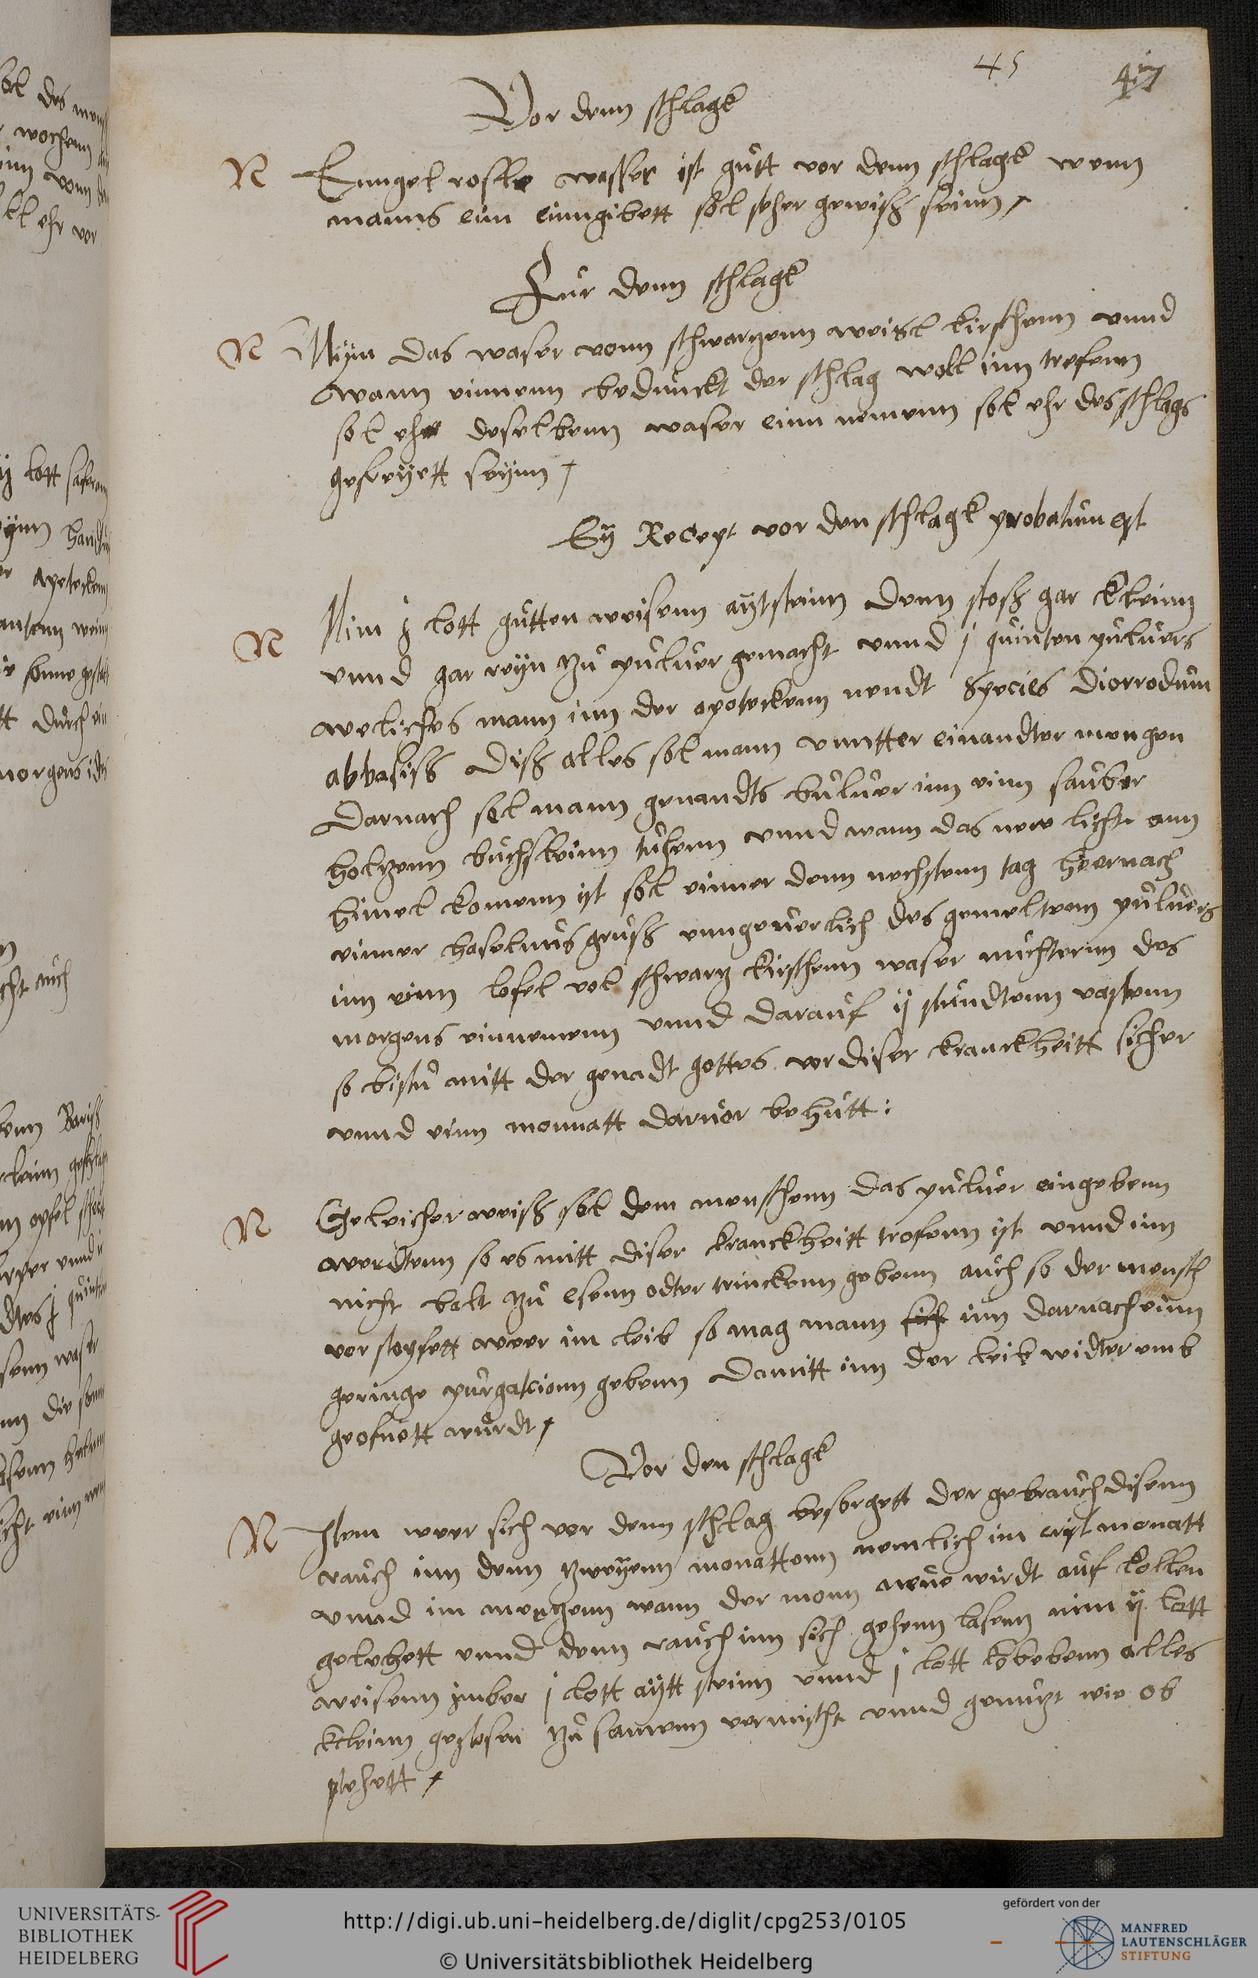 45 47
Vor denn schlagk
N Eungel rosste wasser ist gutt vor denn schlagk wenn
manns einn einngibett sol seher gewiß seinn
Fur denn schlagk
N Nym das waser vonn schwarzenn weisel kirschenn vnnd
wann einnenn bedunckt der schlag woll inn trefenn
sol ehr deselbenn waser einn nemenn sol ehr des schlags
gefreyett seynn
Ey Recept vor den schlagk probatum est
N Nim j lott gutten weisenn aytsteinn denn stoß gar kleinn
vnnd gar reyn zu puluer gemacht vnnd j quinten puluers
welliches mann inn der apoteckenn nendt Species Diorrodum
abbasiß Diß alles sol mann vnntter einandter mengen
Darnach sol mann genandts buluer inn einn sauber
holtzenn buchsleinn tuhenn vnnd wann das new licht ann
himel komenn ist sol einner denn nechstenn tag hiernach
einner haselnus gruß vnngeuerlich des gemeltenn puluers
inn einn lofel vol schwarz kirschenn waser nuchternn des
morgens einnemenn vnnd darauf ij stundtenn vastenn
so bistu mitt der genadt gottes vor diser kranckheitt sicher
vnnd einn monnatt daruor behutt:
N Geleicher weiß sol dem menschenn das puluer eingebenn
werdtenn so es mitt diser kranckheitt trofenn ist vnnd inn
nicht balt zu esenn odter trinckenn gebenn auch so der mensch
verstopfett wer im leib so mag mann sich inn darnach einn
geringe purgatcionn gebenn Damitt inn der leib widter vmb
geofnett wurdt
Vor den schlagk
N Item weer sich vor denn schlag besorgett der gebrauch disenn
rauch inn denn zweyenn monattenn nemlich im aplmonatt
vnnd im mertzenn wann der monn neue wirdt auf kollen
gelehett vnnd denn rauch inn sich gehenn lasenn nim ij lott
weisenn jmber j lott aytt steinn vnnd j lott kobebenn alles
kleinn gestosen zu samenn vermischt vnnd genutzt wie ob
stehett
UNIVERSITÄTS-
BIBLIOTHEK
HEIDELBERG
http://digi.ub.uni-heidelberg.de/diglit/cpg253/0105
© Universitätsbibliothek Heidelberg
gefördert von der
MANFRED
LAUTENSCHLÄGER
STIFTUNG